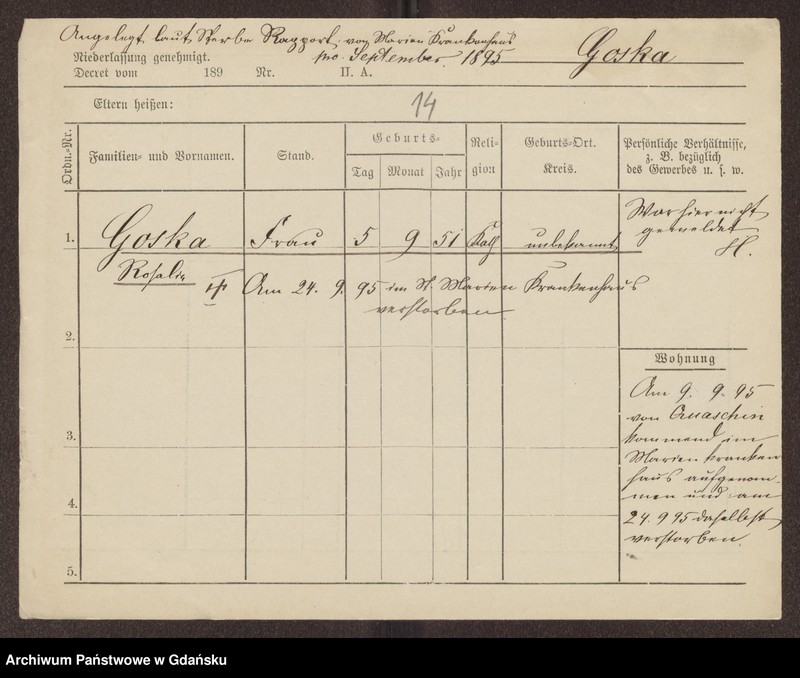 Angelegt laut Sterbe Rapport von Marien Krankenhaus
pro September 1895
Goska
Niederlassung genehmigt.
Decret vom 189 Nr. II. A.
Eltern heißen:
14
Ordn.-Nr.
Familien- und Vornamen.
Stand.
Geburts-
Tag Monat Jahr
Reli-
gion
Geburts-Ort.
Kreis.
Persönliche Verhältnisse,
z. B. bezüglich
des Gewerbes u. s. w.
1.
Goska Frau 5 9 51 Kath unbekannt
War hier nicht
gemeldet
Rosalie Am 24. 9. 95 im St. Marien Krankenhaus
verstorben.
2.
3.
4.
5.
Wohnung
Am 9. 9. 95
von Quaschin
kommend im
Marienkranken
haus aufgenom-
men und am
24. 9 95 daselbst
verstorben.
Archiwum Państwowe w Gdańsku